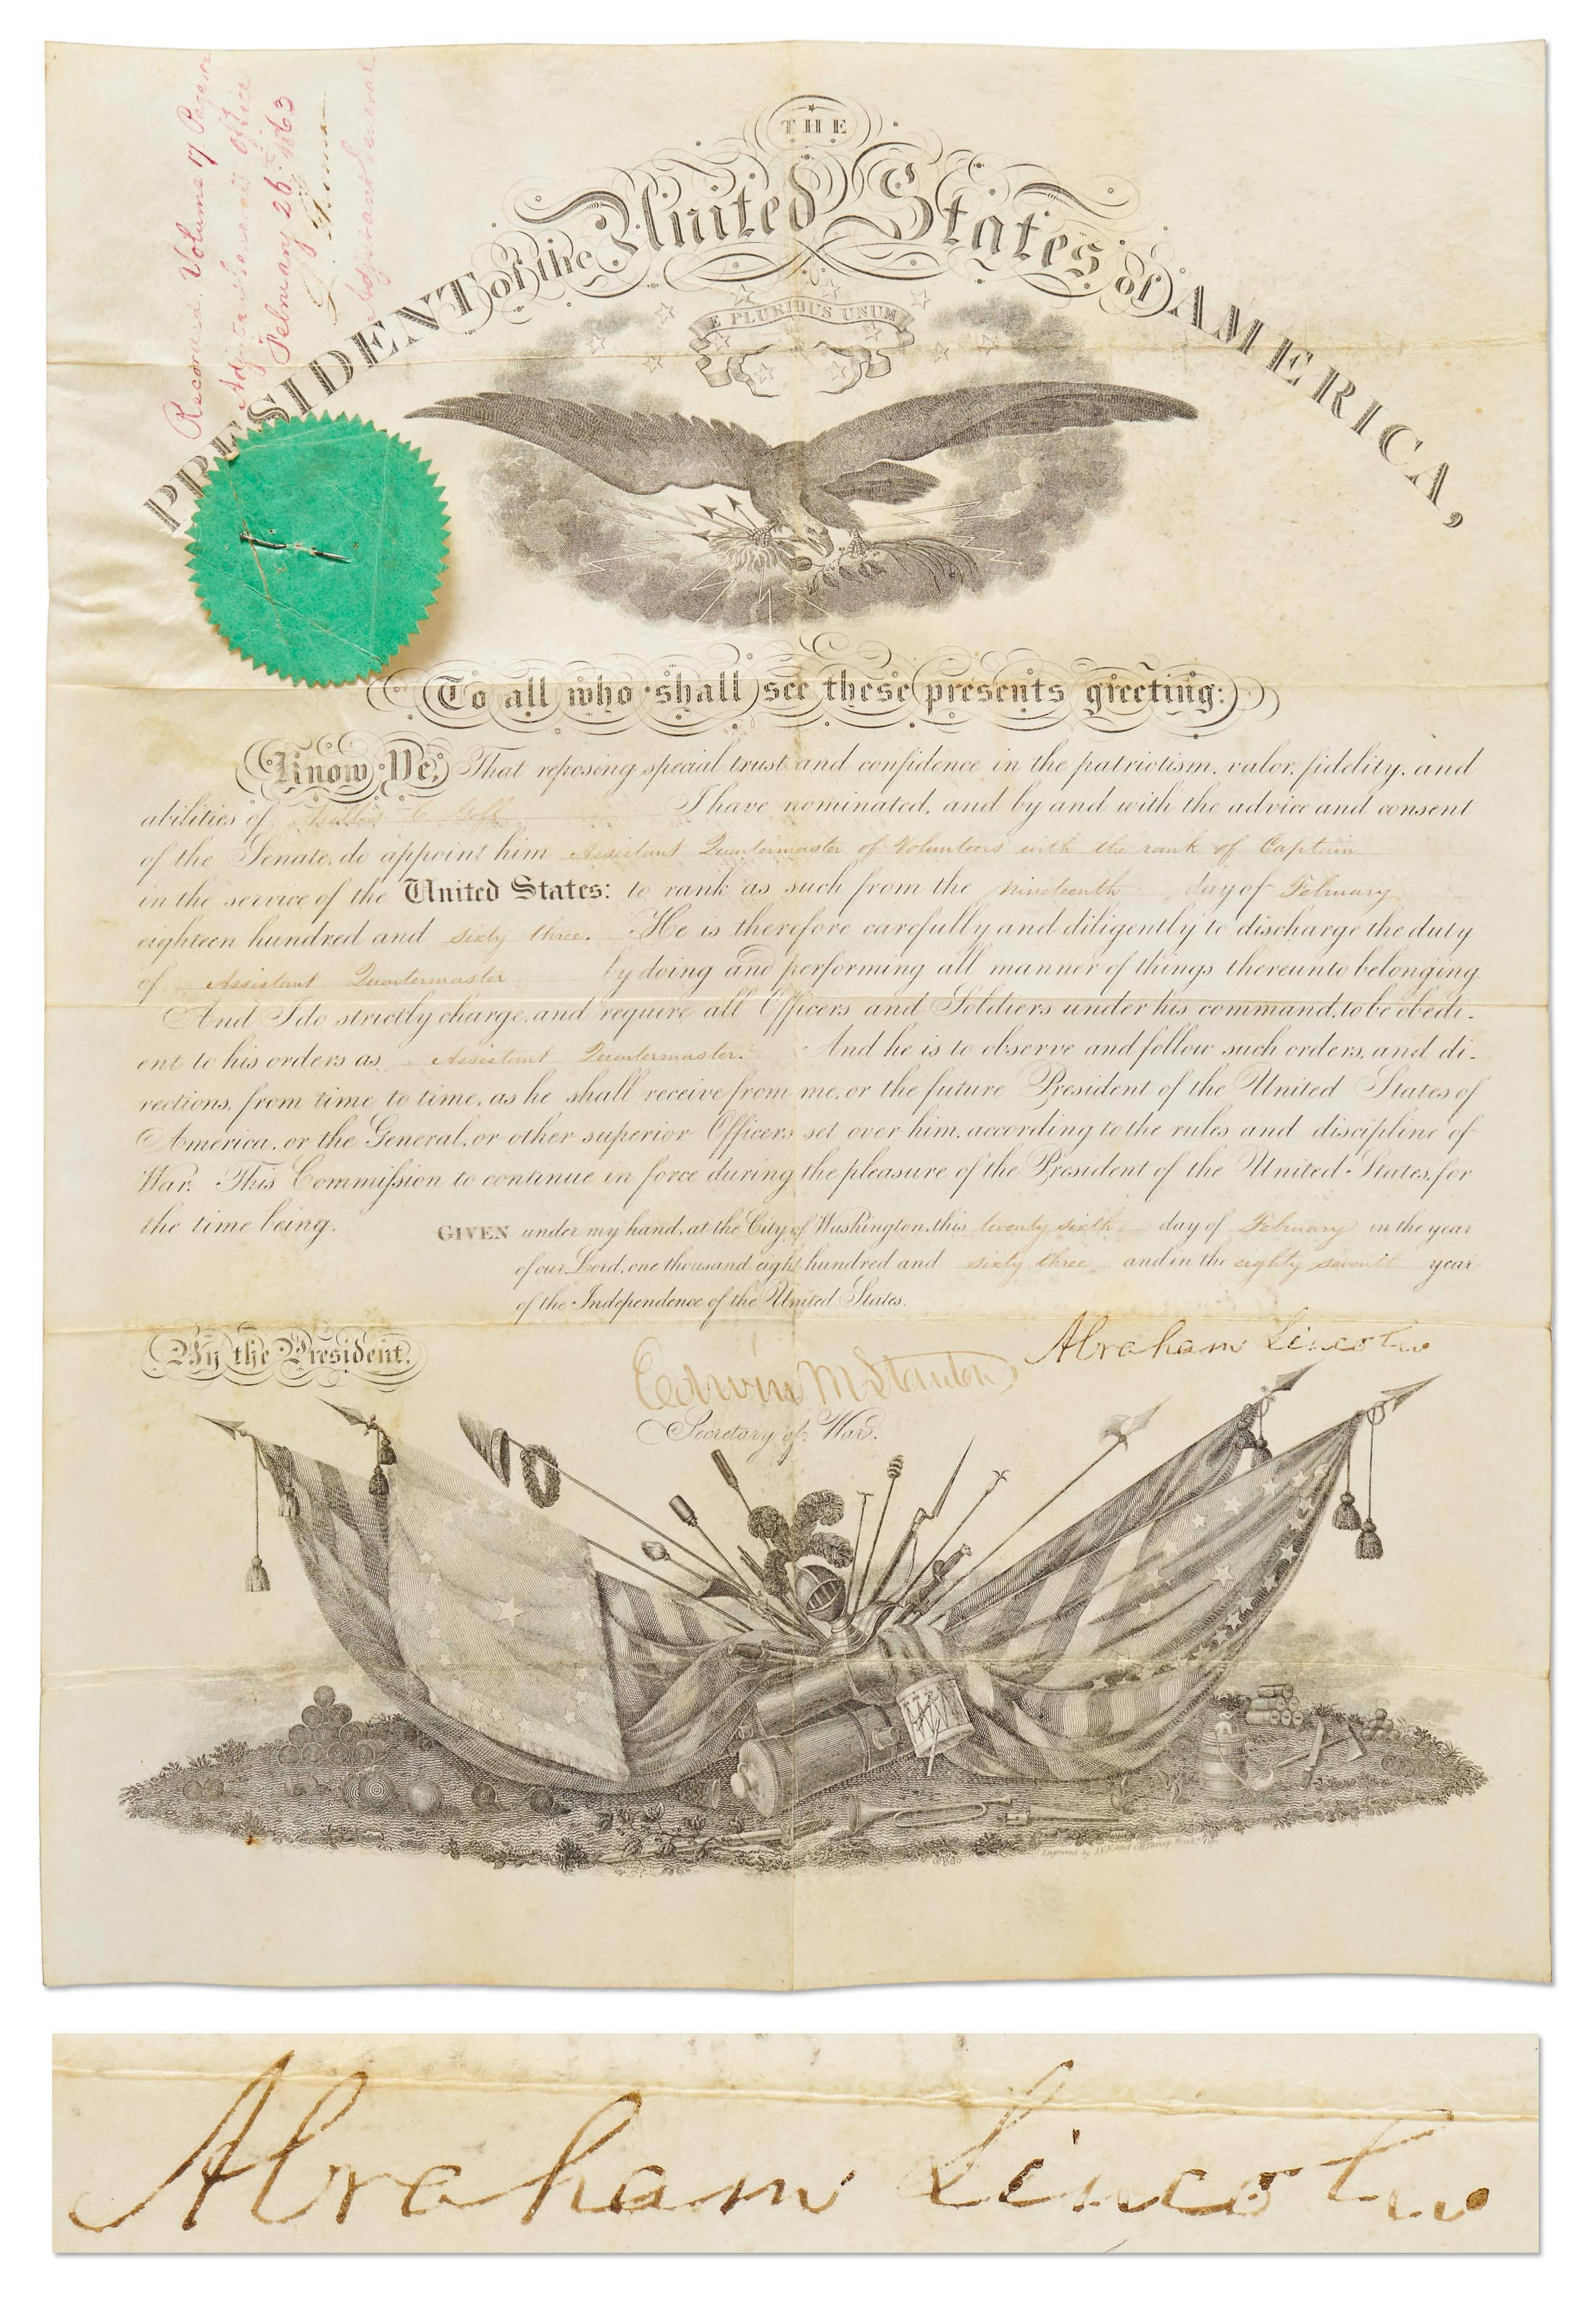 Recorded Volume 17 Page
Adjutant General's Office
February 26th 1863
Adjutant General
THE
PRESIDENT of the United States of AMERICA,
E PLURIBUS UNUM
To all who shall see these presents greeting:
Know Ye, That reposing special trust and confidence in the patriotism, valor, fidelity, and
abilities of C. Goff I have nominated, and by and with the advice and consent
of the Senate, do appoint him Assistant Quartermaster of Volunteers with the rank of Captain
in the service of the United States: to rank as such from the nineteenth day of February
eighteen hundred and sixty three. He is therefore carefully and diligently to discharge the duty
of Assistant Quartermaster by doing and performing all manner of things thereunto belonging.
And I do strictly charge, and require all Officers and Soldiers under his command, to be obedi-
ent to his orders as Assistant Quartermaster. And he is to observe and follow such orders, and di-
rections, from time to time, as he shall receive from me, or the future President of the United States of
America, or the General, or other superior Officers set over him, according to the rules and discipline of
War. This Commission to continue in force during the pleasure of the President of the United States, for
the time being.
GIVEN under my hand, at the City of Washington, this twenty sixth day of February in the year
of our Lord, one thousand eight hundred and sixty three and in the eighty seventh year
of the Independence of the United States.
By the President.
Abraham Lincoln
Edwin M Stanton
Secretary of War.
Engraved by
Abraham Lincoln